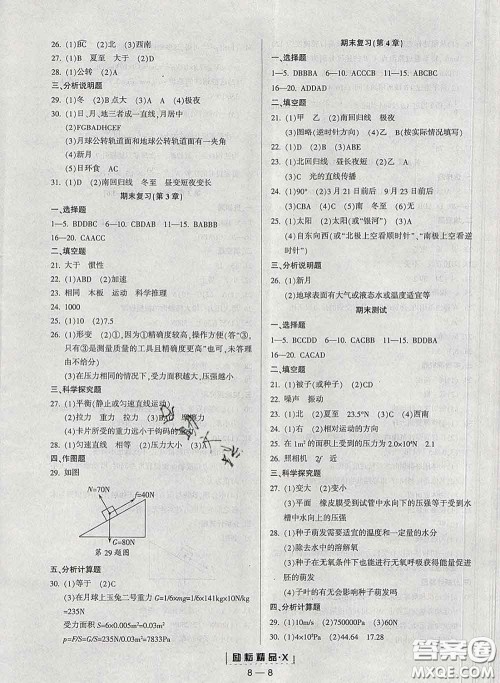 26. (1)BC (2)北 (3)西南
27. (1)B 夏至 大于 (2)D
28. (1)公转 (2)A
三、分析说明题
29. (1)冬 (2)B点大 (3)A 极夜
30. (1)日、地、月三者成一直线，月居中
(2)FGBADHCEF
(3)月球公转轨道面和地球公转轨道面有一夹角
(4)新月
(5)日环食 AC
31. (1)D (2)南回归线 冬至 昼变短夜变长
期末复习(第3章)
一、选择题
1—5. BDDBC 6—10. CBDAB 11—15. BABBB
16—20. CAACC
二、填空题
21. 大于 惯性
22. (1)ABD (2)加速
23. 相同 木板 运动 科学推理
24. 1000
25. (1)10 (2)7.5
26. (1)形变 (2)①，因为①精确度较高、操作方便(答"③，
只有③是测量质量的工具且精确度更高"也可，未答理
由不给分)
(3)在压力相同的情况下，受力面积越大，压强越小
三、科学探究题
27. (1)平衡(静止或匀速直线运动)
(2)拉力 重力 (3)B (3)压力 摩擦力
(4)卡片所受重力远小于钩码的重力
28. (1)匀速直线 相等 (2)压力大小 (3)A
四、作图题
29. 如图
N=70N
f=40N
G=80N
第29题图
五、分析计算题
30. (1)等于 (2)C
(3)在月球上玉兔二号重力 G=1/6×mg=1/6×141kg×10N/kg
=235N
受力面积 S=6×0.005m²=0.03m²
p=F/S=G/S=235N/0.03m²=7833Pa
期末复习(第4章)
一、选择题
1—5. DBBBA 6—10. ACCCB 11—15. ABCBC
16—20. ADDAD
二、填空题
21. (1)甲 乙 (2)南回归线 (3)甲 乙
(3)图略(逆时针方向) (4)乙 B(按实际情况填写)
22. (1)D (2)新月
23. (1)北回归线 昼长夜短 (2)D (3)CE
(4)光的直线传播
24. (1)90° (2)3月21日前后 9月23日前后
(3)变大 (4)A
25. (1)太阳 (2)太阳(或"银河") (3)A
(4)自东向西(或"北极上空看顺时针"、"南极上空看逆
时针")
三、分析说明题
26. (1)新月
(2)地球表面有大气或液态水或温度适宜等
期末测试
一、选择题
1—5. BCCDD 6—10. CADBD 11—15. BDDBB
16—20. CACAD
二、填空题
21. (1)被(或种子) (2)CD
22. 噪声 振动
23. (1)北 (2)夏至 23.5°N (3)B (2)变短
24. (1)B (2)相对运动的方向
25. 在1m²的面积上受到的压力是2.0×10⁴N 2.1
26. 照相机 2f 近
三、科学探究题
27. (1)变大 (2)变小
(3)平面 橡皮膜受到试管中水向下的压强等于水槽
中水向上的压强
28. (1)种子萌发需要适宜的温度和一定量的水分
(2)除去水中的溶解氧
(3)在无氧条件下也能进行无氧呼吸获得能量使得胚
胚胎萌发
(4)种子的有无会影响种子萌发吗？
四、分析计算题
29. (1)10m/s (2)750000Pa (2)变小
30. (1)4×10⁵Pa (2)44.64 17.28
励耘精品·X
8—8
答案圈
MXQE.COM